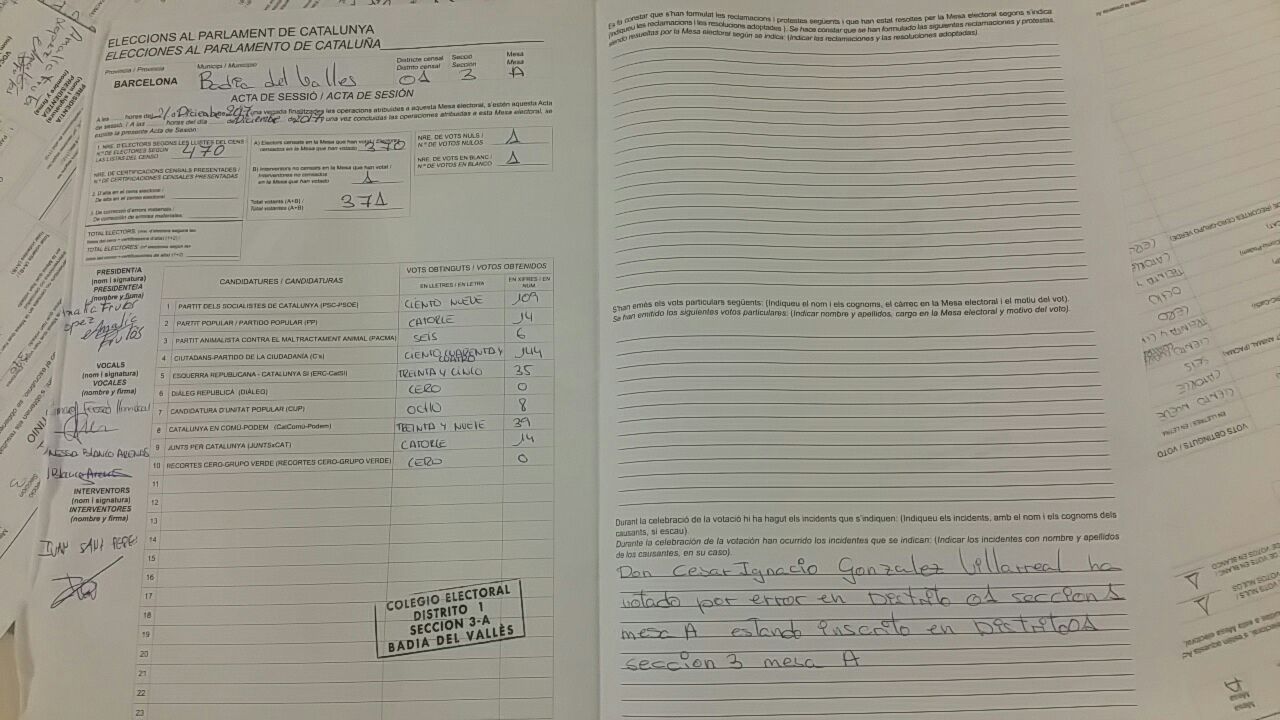 ELECCIONS AL PARLAMENT DE CATALUNYA
ELECCIONES AL PARLAMENTO DE CATALUÑA
Provincia / Provincia
Municipi / Municipio
Districte censal
Distrito censal
Secció
Sección
Mesa
Mesa
BARCELONA
Badia del Valles
01
3
A
ACTA DE SESSIÓ / ACTA DE SESIÓN
1. NRE. D'ELECTORS SEGONS LES LLISTES DEL CENS
N.º DE ELECTORES SEGÚN
LAS LISTAS DEL CENSO
470
NRE. DE CERTIFICACIONS CENSALS PRESENTADES /
N.º DE CERTIFICACIONES CENSALES PRESENTADAS
2. D'alta en el cens electoral /
De alta en el censo electoral
3. De correcció d'errors materials /
De corrección de errores materiales
A) Electors censats en la Mesa que han votat
censados en la Mesa que han votado
370
B) Interventors no censats en la Mesa que han votat /
Interventores no censados
en la Mesa que han votado
1
Total votants (A+B) /
Total votantes (A+B)
371
NRE. DE VOTS NULS /
N.º DE VOTOS NULOS
1
NRE. DE VOTS EN BLANC /
N.º DE VOTOS EN BLANCO
1
PRESIDENT/A
(nom i signatura)
PRESIDENTE/A
(nombre y firma)
VOCALS
(nom i signatura)
VOCALES
(nombre y firma)
INTERVENTORS
(nom i signatura)
INTERVENTORES
(nombre y firma)
CANDIDATURES / CANDIDATURAS
VOTS OBTINGUTS / VOTOS OBTENIDOS
EN LLETRES / EN LETRA
EN XIFRES / EN NUM.
1 PARTIT DELS SOCIALISTES DE CATALUNYA (PSC-PSOE) CIENTO NUEVE 109
2 PARTIT POPULAR / PARTIDO POPULAR (PP) CATORCE 14
3 PARTIT ANIMALISTA CONTRA EL MALTRACTAMENT ANIMAL (PACMA) SEIS 6
4 CIUTADANS-PARTIDO DE LA CIUDADANÍA (C's) CIENTO CUARENTA Y CUATRO 144
5 ESQUERRA REPUBLICANA - CATALUNYA SÍ (ERC-CatSí) TREINTA Y CINCO 35
6 DIÀLEG REPUBLICÀ (DIÀLEG) CERO 0
7 CANDIDATURA D'UNITAT POPULAR (CUP) OCHO 8
8 CATALUNYA EN COMÚ-PODEM (CatComú-Podem) TREINTA Y NUEVE 39
9 JUNTS PER CATALUNYA (JUNTSxCAT) CATORCE 14
10 RECORTES CERO-GRUPO VERDE (RECORTES CERO-GRUPO VERDE) CERO 0
11
12
13
14
15
16
17
18
19
20
21
22
23
COLEGIO ELECTORAL
DISTRITO 1
SECCION 3-A
BADIA DEL VALLÈS
Es fa constar que s'han formulat les reclamacions i protestes següents i que han estat resoltes per la Mesa electoral segons s'indica
(Indiqueu les reclamacions i les resolucions adoptades). Se hace constar que se han formulado las siguientes reclamaciones y protestas,
siendo resueltas por la Mesa electoral según se indica: (Indicar las reclamaciones y las resoluciones adoptadas).
S'han emès els vots particulars següents: (Indiqueu el nom i els cognoms, el càrrec en la Mesa electoral i el motiu del vot).
Se han emitido los siguientes votos particulares: (Indicar nombre y apellidos, cargo en la Mesa electoral y motivo del voto).
Durant la celebració de la votació hi ha hagut els incidents que s'indiquen: (Indiqueu els incidents, amb el nom i els cognoms dels
causants, si escau).
Durante la celebración de la votación han ocurrido los incidentes que se indican: (Indicar los incidentes con nombre y apellidos
de los causantes, en su caso).
Don Cesar Ignacio Gonzalez Villarreal ha
votado por error en Distrito 01 seccion 1
mesa A estando inscrito en Distrito 01
seccion 3 mesa A